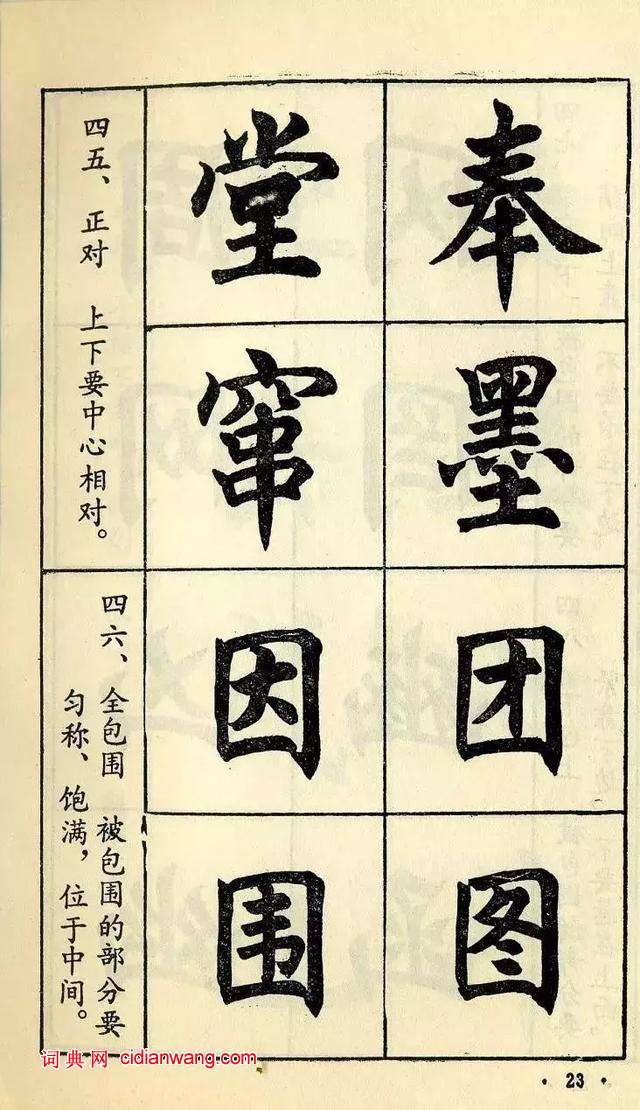 四五、正对 上下要中心相对。
堂 奉
窜 墨
四六、全包围 被包围的部分要
匀称、饱满，位于中间。
因 团
围 图
词典网 cidianwang.com
·23·